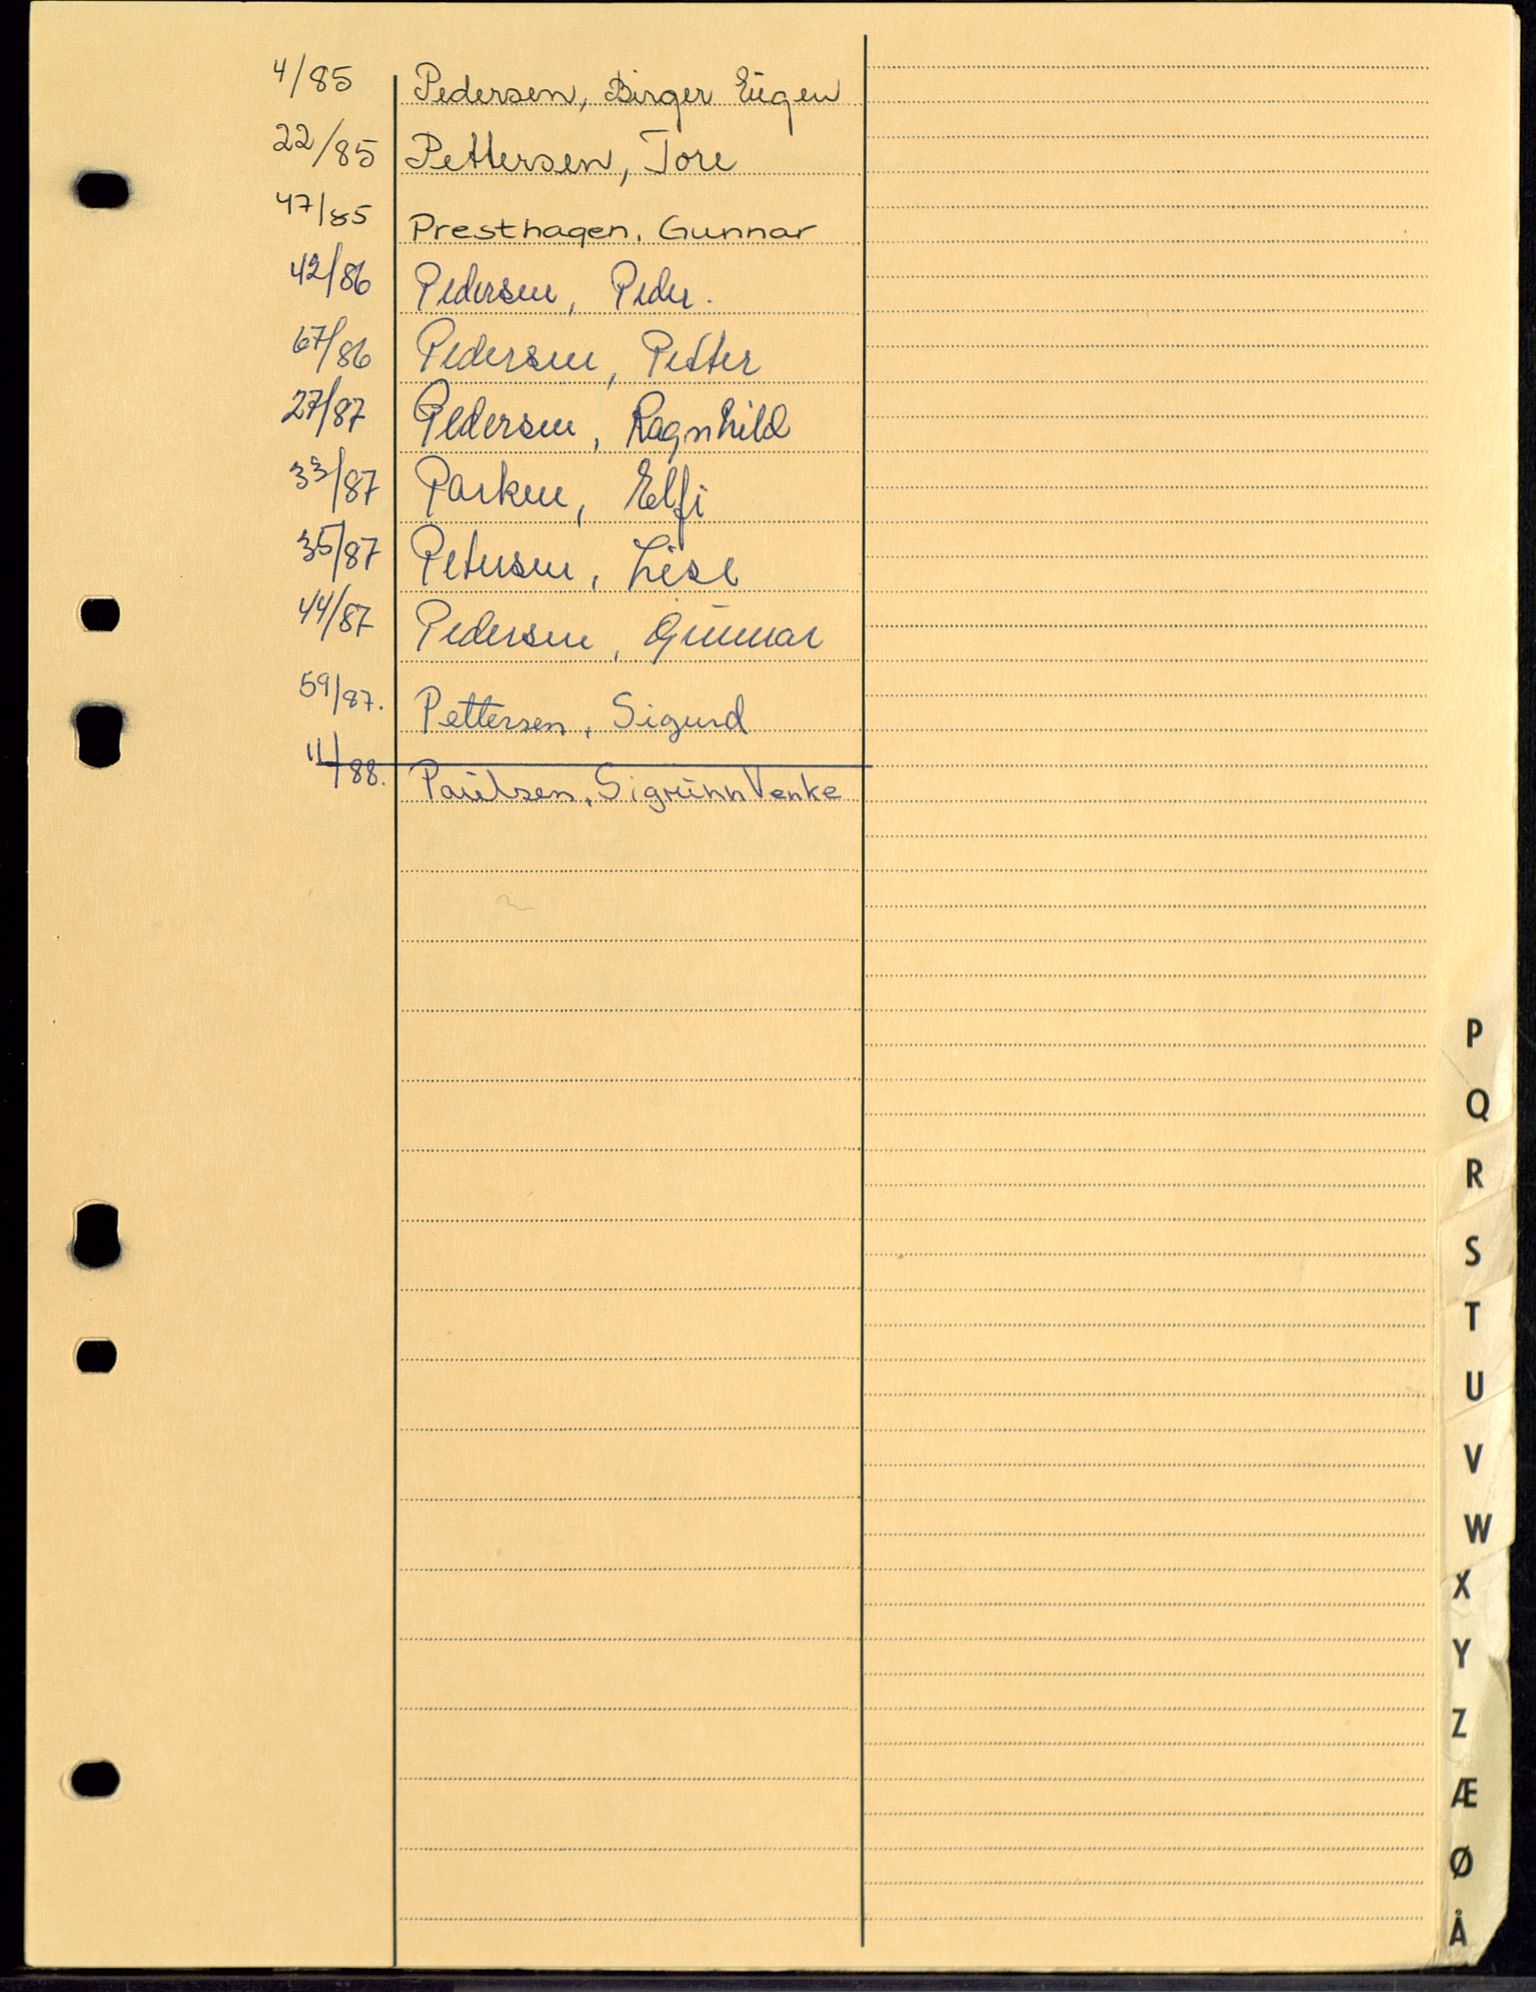 4/85 Pedersen, Birger Eugen
22/85 Pettersen, Tore
47/85 Presthagen, Gunnar
42/86 Pedersen, Peder.
67/86 Pedersen, Petter
27/87 Pedersen, Ragnhild
33/87 Parken, Elfi
35/87 Petersen, Lise
44/87 Pedersen, Gunnar
59/87. Pettersen, Sigurd
11/88. Paulsen, Sigrunn Venke
P
Q
R
S
T
U
V
W
X
Y
Z
Æ
Ø
Å